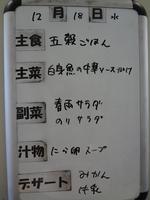 12月18日水
主食 五穀ごはん
主菜 白身魚の中華ソースかけ
副菜 春雨サラダ
のりサラダ
汁物 にら卵スープ
デザート みかん
牛乳